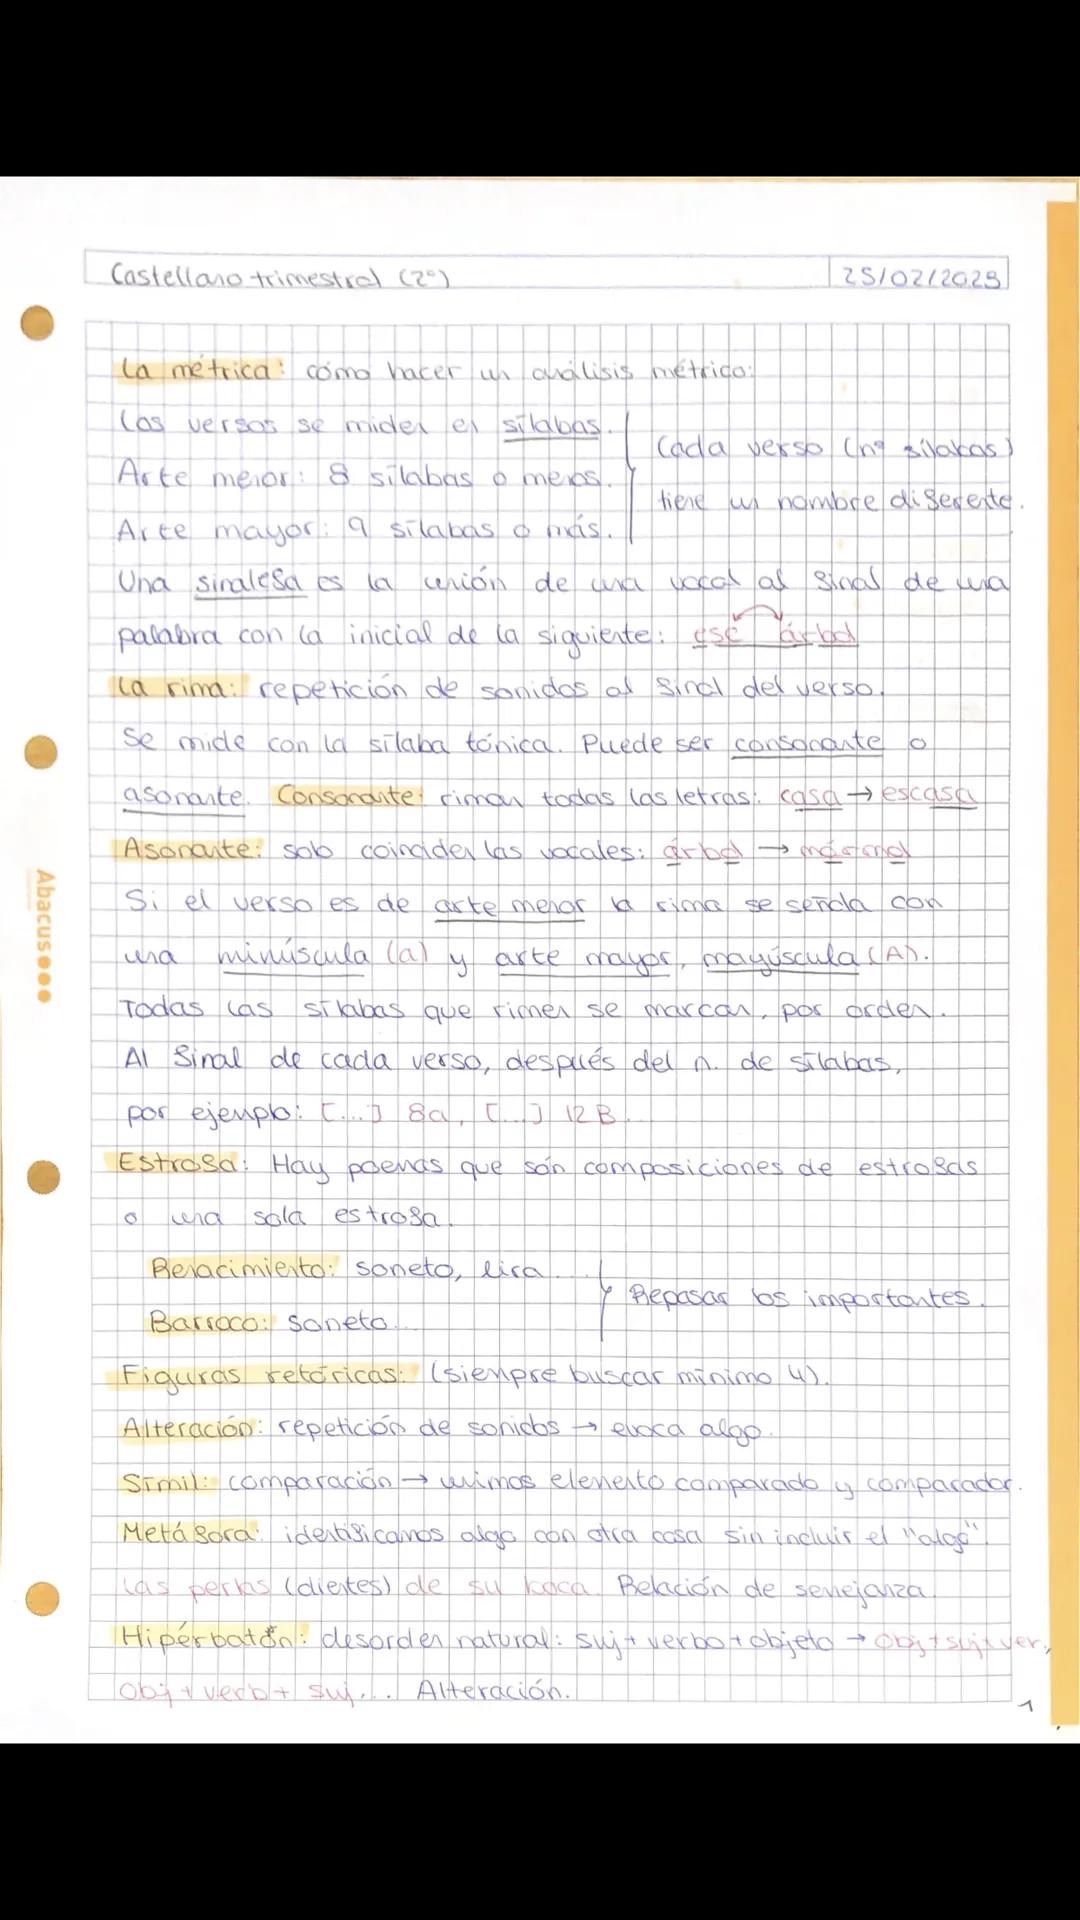 Castellano trimestral (2º) 25/02/2025
La métrica: cómo hacer un análisis métrico:
Los versos se miden en sílabas.
Cada verso (nº sílabas)
Arte menor: 8 sílabas o menos.
tiene un nombre diferente.
Arte mayor: 9 sílabas o más.
Una sinalefa es la unión de una vocal al final de una
palabra con la inicial de la siguiente: ese árbol
La rima: repetición de sonidos al final del verso.
Se mide con la sílaba tónica. Puede ser consonante o
asonante. Consonante: riman todas las letras: casa → escasa
Asonante: solo coinciden las vocales: árbol → mármol
Si el verso es de arte menor la rima se señala con
una minúscula (a) y arte mayor, mayúscula (A).
Todas las sílabas que rimen se marcan, por orden.
Al final de cada verso, después del n. de sílabas,
por ejemplo: [...] 8a, [...] 12B.
Estrofa: Hay poemas que són composiciones de estrofas
o una sola estrofa.
Renacimiento: soneto, lira...
Repasar los importantes.
Barroco: soneto...
Figuras retóricas: (siempre buscar mínimo 4).
Alteración: repetición de sonidos → evoca algo.
Símil: comparación → unimos elemento comparado y comparador.
Metáfora: identificamos algo con otra cosa sin incluir el "algo".
Las perlas (dientes) de su boca. Relación de semejanza.
Hipérbaton: desorden natural: suj + verbo + objeto → obj + suj + ver,
obj + verb + suj... Alteración.
1
Abacus